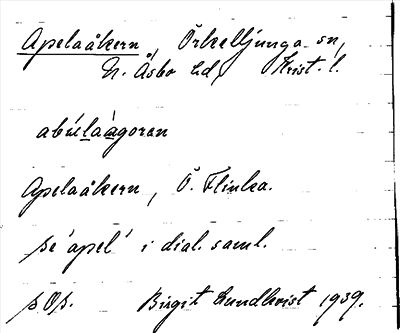 Apelaåkern, Örkelljunga sn,
N. Åsbo hd, Krist. l.
abélaágoran
Apelaåkern, Ö. Flinka.
se 'apel' i dial. saml.
s. Os. Birgit Lundkvist 1939.